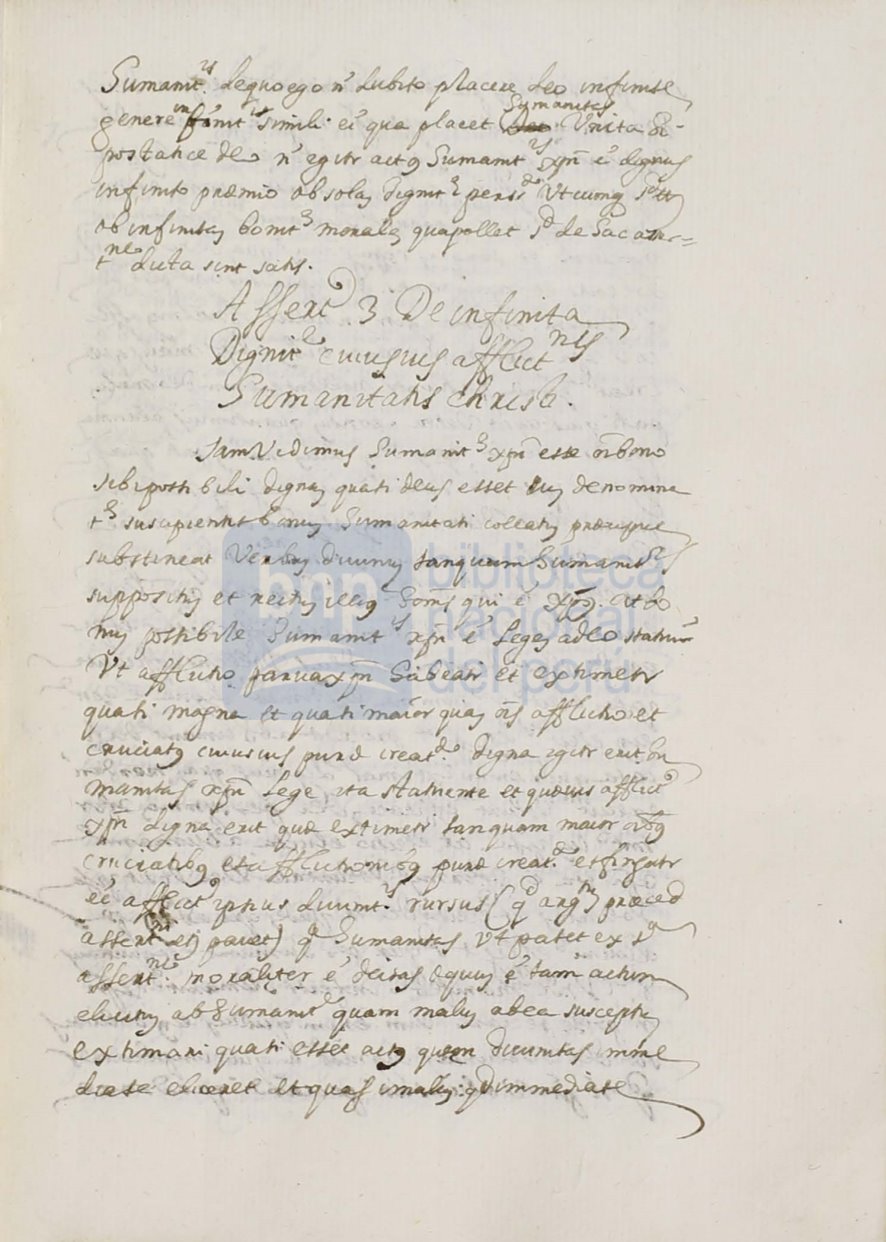 Humanit.is de quo ego n̄ dubito placere deo infinite
genere infinit.is simili ei qua placet Humanitas Unita Hi-
postatice deo n̄ egitr actus Humanit.is xpī ē dignus
infinito præmio ob solam dignit.e personæ Utcumq
ob infinitam bonit.e moralem qua pollet de hac
dicta sint satis.
Assert.o 3 De infinita
Dignit.e cuiusvis afflict.nis
Humanitatis Christi.
Jam Vidimus Humanit.e xpī esse oī bono
sibi possibili dignam quasi deus esset denomina
t.e suscipientis bonum Humanitati collatum præcisque
substineat Verbum divinum tanquam Humanit.is
suppositum et rectum illius Hominis qui ē xp̄us. at do
num possibile Humanit.is xpī ē Legem a deo statui
Vt afflictio parva xpī habeatr et extimetr
quasi magna et quasi maior quam oīs afflictio et
cruciatus cuiusvis puræ creat.æ digna igitr erit hu
manitas xpī Lege ita statuente et quævis afflict.o
xpī digna erit quæ extimetr tanquam maior oībus
cruciatibus et afflictionibus puræ creat.æ
afflict.o ipsius divinit.is rursus (qd arg.tm præced
assert.nis etj pavet) qa Humanitas Vt patet ex 1a
assert.ne moraliter ē deitas æquum ē tam actum
elicitum ab Humanit.e quam malum ab ea susceptum
extimari quasi esset actus quem divinitas imme
diate eliceret et quasi malum qd immediate